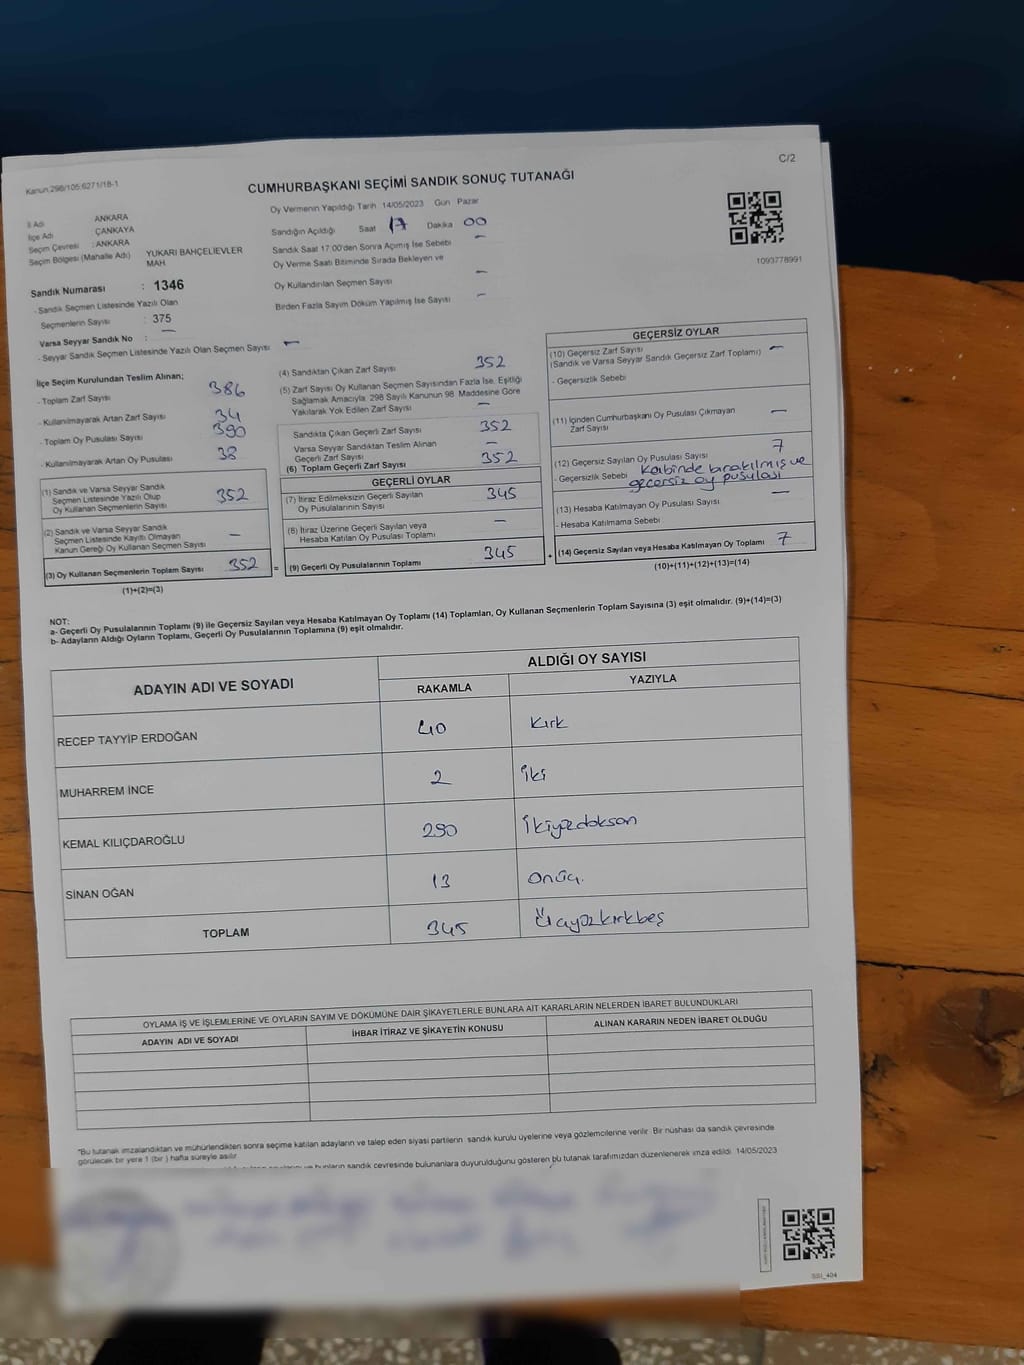 Kanun:298/105:6271/18-1
C/2
CUMHURBAŞKANI SEÇİMİ SANDIK SONUÇ TUTANAĞI
İl Adı : ANKARA
İlçe Adı : ÇANKAYA
Seçim Çevresi : ANKARA
Seçim Bölgesi (Mahalle Adı) YUKARI BAHÇELİEVLER MAH
Sandık Numarası : 1346
- Sandık Seçmen Listesinde Yazılı Olan
Seçmenlerin Sayısı : 375
Varsa Seyyar Sandık No : —
- Seyyar Sandık Seçmen Listesinde Yazılı Olan Seçmen Sayısı —
Oy Vermenin Yapıldığı Tarih 14/05/2023 Gün Pazar
Sandığın Açıldığı Saat 17 Dakika 00
Sandık Saat 17:00'den Sonra Açımış İse Sebebi —
Oy Verme Saati Bitiminde Sırada Bekleyen ve
Oy Kullandırılan Seçmen Sayısı —
Birden Fazla Sayım Döküm Yapılmış İse Sayısı —
1093778991
İlçe Seçim Kurulundan Teslim Alınan;
- Toplam Zarf Sayısı 386
- Kullanılmayarak Artan Zarf Sayısı 34
- Toplam Oy Pusulası Sayısı 390
- Kullanılmayarak Artan Oy Pusulası 38
(1) Sandık ve Varsa Seyyar Sandık
Seçmen Listesinde Yazılı Olup
Oy Kullanan Seçmenlerin Sayısı 352
(2) Sandık ve Varsa Seyyar Sandık
Seçmen Listesinde Kayıtlı Olmayan
Kanun Gereği Oy Kullanan Seçmen Sayısı —
(3) Oy Kullanan Seçmenlerin Toplam Sayısı 352 =
(1)+(2)=(3)
(4) Sandıktan Çıkan Zarf Sayısı 352
(5) Zarf Sayısı Oy Kullanan Seçmen Sayısından Fazla İse, Eşitliği
Sağlamak Amacıyla, 298 Sayılı Kanunun 98. Maddesine Göre
Yakılarak Yok Edilen Zarf Sayısı —
Sandıkta Çıkan Geçerli Zarf Sayısı 352
Varsa Seyyar Sandıktan Teslim Alınan
Geçerli Zarf Sayısı —
(6) Toplam Geçerli Zarf Sayısı 352
GEÇERLİ OYLAR
(7) İtiraz Edilmeksizin Geçerli Sayılan
Oy Pusulalarının Sayısı 345
(8) İtiraz Üzerine Geçerli Sayılan veya
Hesaba Katılan Oy Pusulası Toplamı —
(9) Geçerli Oy Pusulalarının Toplamı 345 +
GEÇERSİZ OYLAR
(10) Geçersiz Zarf Sayısı
(Sandık ve Varsa Seyyar Sandık Geçersiz Zarf Toplamı) —
- Geçersizlik Sebebi
(11) İçinden Cumhurbaşkanı Oy Pusulası Çıkmayan
Zarf Sayısı —
(12) Geçersiz Sayılan Oy Pusulası Sayısı 7
- Geçersizlik Sebebi kabinde bırakılmış ve
geçersiz oy pusulası
(13) Hesaba Katılmayan Oy Pusulası Sayısı —
- Hesaba Katılmama Sebebi
(14) Geçersiz Sayılan veya Hesaba Katılmayan Oy Toplamı 7
(10)+(11)+(12)+(13)=(14)
NOT:
a- Geçerli Oy Pusulalarının Toplamı (9) ile Geçersiz Sayılan veya Hesaba Katılmayan Oy Toplamı (14) Toplamları, Oy Kullanan Seçmenlerin Toplam Sayısına (3) eşit olmalıdır. (9)+(14)=(3)
b- Adayların Aldığı Oyların Toplamı, Geçerli Oy Pusulalarının Toplamına (9) eşit olmalıdır.
ADAYIN ADI VE SOYADI ALDIĞI OY SAYISI
RAKAMLA YAZIYLA
RECEP TAYYİP ERDOĞAN 40 Kırk
MUHARREM İNCE 2 İki
KEMAL KILIÇDAROĞLU 290 İkiyüzdoksan
SİNAN OĞAN 13 Onüç.
TOPLAM 345 Üçyüzkırkbeş
OYLAMA İŞ VE İŞLEMLERİNE VE OYLARIN SAYIM VE DÖKÜMÜNE DAİR ŞİKAYETLERLE BUNLARA AİT KARARLARIN NELERDEN İBARET BULUNDUKLARI
ADAYIN ADI VE SOYADI İHBAR İTİRAZ VE ŞİKAYETİN KONUSU ALINAN KARARIN NEDEN İBARET OLDUĞU
"Bu tutanak imzalandıktan ve mühürlendikten sonra seçime katılan adayların ve talep eden siyasi partilerin sandık kurulu üyelerine veya gözlemcilerine verilir. Bir nüshası da sandık çevresinde
görülecek bir yere 1 (bir ) hafta süreyle asılır
bunların sandık çevresinde bulunanlara duyurulduğunu gösteren bu tutanak tarafımızdan düzenlenerek imza edildi. 14/05/2023
SSI_404